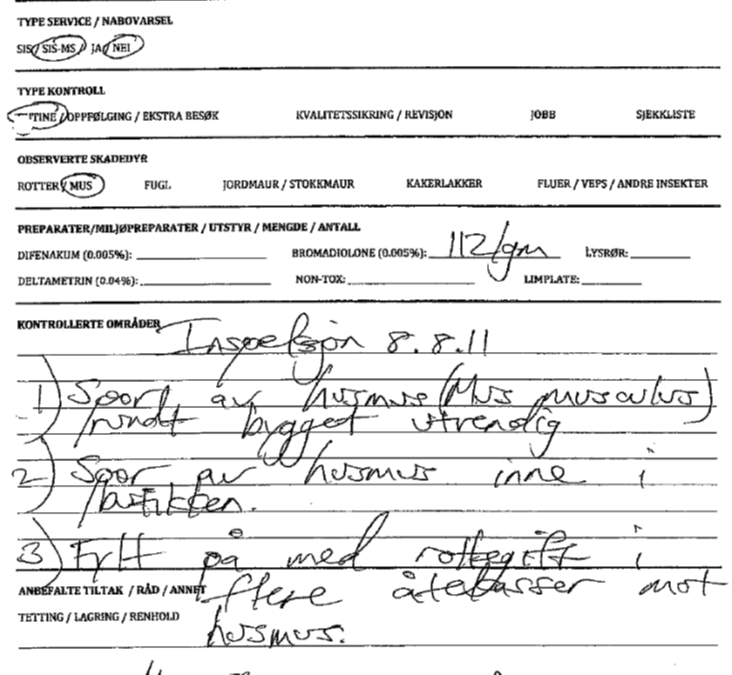 TYPE SERVICE / NABOVARSEL
SIS / SIS-MS / JA / NEI
TYPE KONTROLL
TINE / OPPFØLGING / EKSTRA BESØK KVALITETSSIKRING / REVISJON JOBB SJEKKLISTE
OBSERVERTE SKADEDYR
ROTTER / MUS FUGL JORDMAUR / STOKKMAUR KAKERLAKKER FLUER / VEPS / ANDRE INSEKTER
PREPARATER/MILJØPREPARATER / UTSTYR / MENGDE / ANTALL
DIFENAKUM (0.005%): BROMADIOLONE (0.005%): 112/gm LYSRØR:
DELTAMETRIN (0.04%): NON-TOX: LIMPLATE:
KONTROLLERTE OMRÅDER
Inspeksjon 8.8.11
1) Spor av husmus (Mus musculus)
rundt bygget utvendig
2) Spor av husmus inne i
butikken.
3) Fylt på med rottegift i
ANBEFALTE TILTAK / RÅD / ANNET
flere åtekasser mot
TETTING / LAGRING / RENHOLD
husmus.